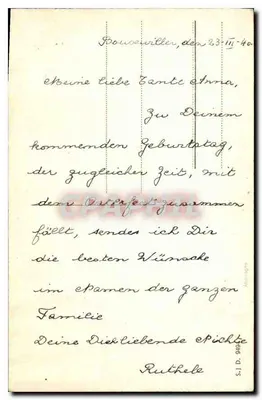 Bouxwiller, den 23-III-40
Meine liebe Tante Anna,
Zu Deinem
kommenden Geburtstag,
der zugleicher Zeit, mit
dem Osterfest zusammen
fällt, sendes ich Dir
die besten Wünsche
im Namen der ganzen
Familie
Deine Dich liebende Nichte
Ruthele